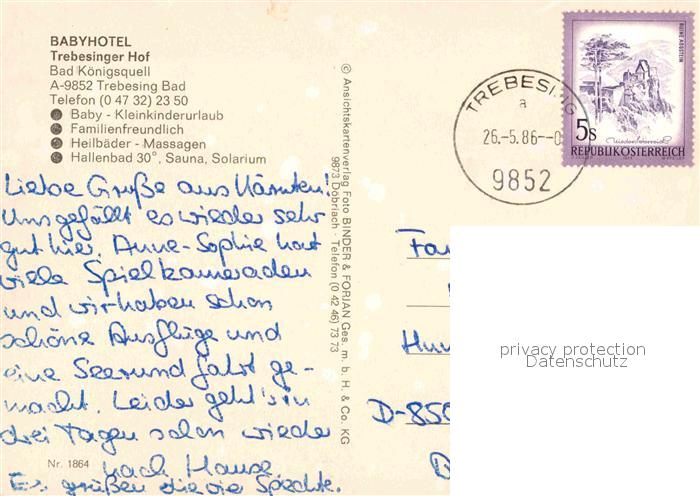 BABYHOTEL
Trebesinger Hof
Bad Königsquell
A-9852 Trebesing Bad
Telefon (0 47 32) 23 50
Baby - Kleinkinderurlaub
Familienfreundlich
Heilbäder - Massagen
Hallenbad 30°, Sauna, Solarium
Liebe Grüße aus Kärnten!
Uns gefällt es wieder sehr
gut hier. Anne-Sophie hat
viele Spielkameraden
und wir haben schon
schöne Ausflüge und
eine Seerundfahrt ge-
macht. Leider geht's in
drei Tagen schon wieder
nach Hause.
Es grüßen die
Nr. 1864
© Ansichtskartenverlag Foto BINDER & FORIAN Ges. m. b. H. & Co. KG
9873 Döbriach - Telefon (0 42 46) 73 73
TREBESING
a
26.-5.86--0
9852
RUINE AGGSTEIN
5S
Niederösterreich
REPUBLIK ÖSTERREICH
Fa
D-850
privacy protection
Datenschutz